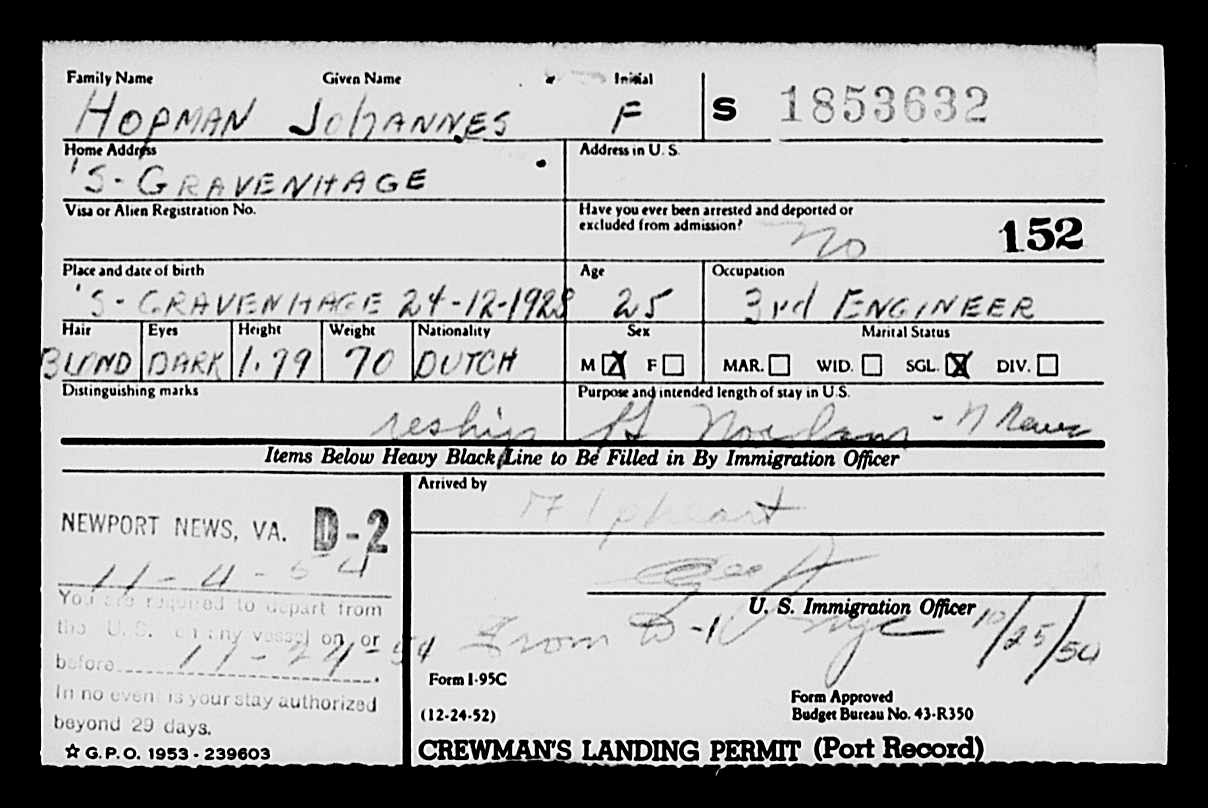 Family Name Given Name Initial
HOPMAN JOHANNES F S 1853632
Home Address Address in U. S.
'S-GRAVENHAGE
Visa or Alien Registration No. Have you ever been arrested and deported or
excluded from admission? No 152
Place and date of birth Age Occupation
'S-GRAVENHAGE 24-12-1928 25 3rd ENGINEER
Hair Eyes Height Weight Nationality Sex Marital Status
BLOND DARK 1.79 70 DUTCH M X F MAR. WID. SGL. X DIV.
Distinguishing marks Purpose and intended length of stay in U.S.
reship
Items Below Heavy Black Line to Be Filled in By Immigration Officer
Arrived by
NEWPORT NEWS, VA. D-2
11-4-54
U. S. Immigration Officer
You are required to depart from
the U. S. on any vessel on or
before 11-22-54
from D-1 NYC 10/25/54
In no event is your stay authorized
beyond 29 days.
Form I-95C
(12-24-52)
Form Approved
Budget Bureau No. 43-R350
☆ G.P.O. 1953 - 239603
CREWMAN'S LANDING PERMIT (Port Record)